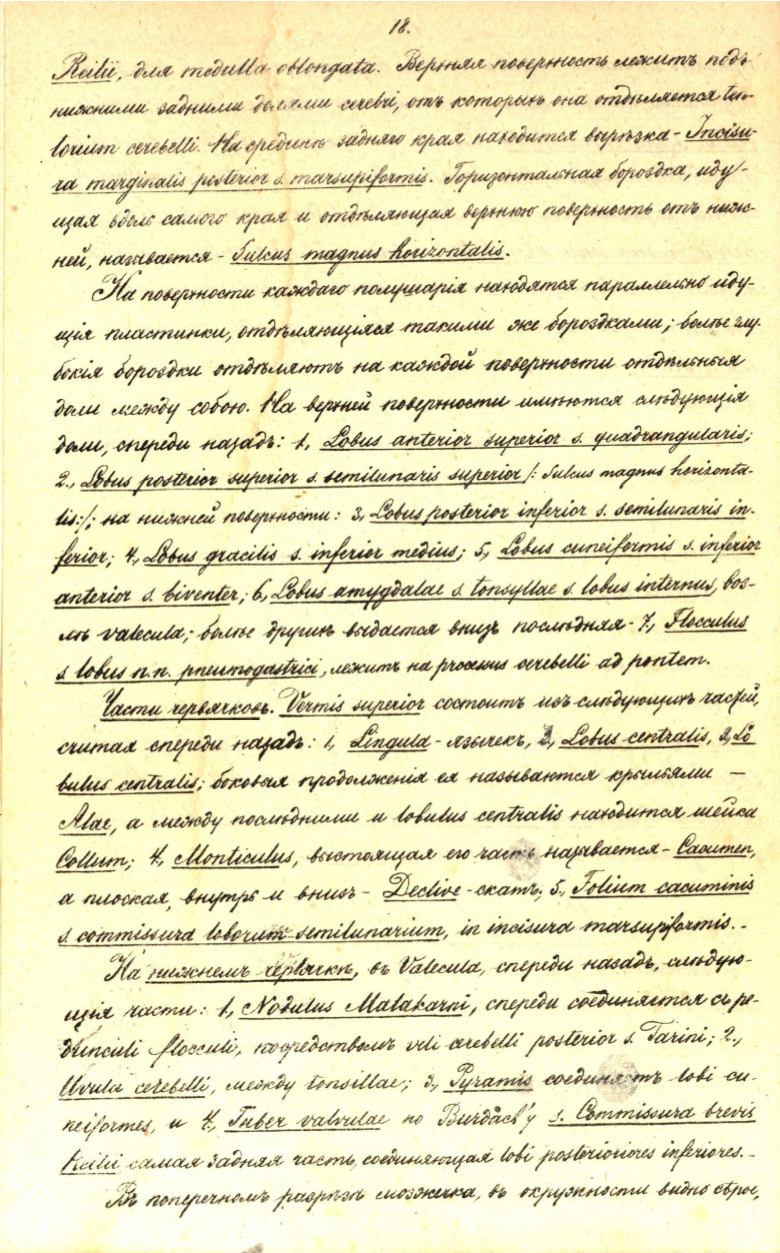 18.
Reilii, для medulla oblongata. Верхняя поверхность лежитъ подъ
нижними задними долями cerebri, отъ которыхъ она отдѣляется ten-
torium cerebelli. На срединѣ задняго края находится вырѣзка - Incisu-
ra marginalis posterior s. marsupiformis. Горизонтальная бороздка, иду-
щая вдоль самого края и отдѣляющая верхнюю поверхность отъ ниж-
ней, называется - Sulcus magnus horizontalis.
На поверхности каждаго полушарія находятся параллельно иду-
щія пластинки, отдѣляющіяся такими же бороздками; болѣе глу-
бокія бороздки отдѣляютъ на каждой поверхности отдѣльныя
доли между собою. На верхней поверхности имѣются слѣдующія
доли, спереди назадъ: 1, Lobus anterior superior s. quadrangularis;
2., Lobus posterior superior s. semilunaris superior /: Sulcus magnus horizonta-
lis:/; на нижней поверхности: 3, Lobus posterior inferior s. semilunaris in-
ferior; 4, Lobus gracilis s. inferior medius; 5, Lobus cuneiformis s. inferior
anterior s. biventer; 6, Lobus amygdalae s. tonsyllae s. lobus internus, воз-
лѣ valecula; болѣе другихъ выдается внизъ послѣдняя - 7, Flocculus
s lobus n.n. pneumogastrici, лежитъ на processus cerebelli ad pontem.
Части червячковъ. Vermis superior состоитъ изъ слѣдующихъ частей,
считая спереди назадъ: 1, Lingula - язычекъ, 2, Lobus centralis, 3, Lo
bulus centralis; боковыя продолженія ея называются крыльями —
Alae, а между послѣдними и lobulus centralis находится шейка
Collum; 4, Monticulus, выстоящая его часть называется - Cacumen,
а плоская, внутрь и внизъ - Declive - скатъ; 5, Folium cacuminis
s. commissura loborum semilunarium, in incisura marsupiformis. -
На нижнемъ червячкѣ, въ Valecula, спереди назадъ, слѣдую-
щія части: 1, Nodulus Malakarni, спереди соединяется съ pe-
dunculi flocculi, посредствомъ veli cerebelli posterior s. Tarini; 2.,
Uvula cerebelli, между tonsillae; 3, Pyramis соединяетъ lobi cu-
neiformes, и 4, Tuber valvulae по Burdach'у s. Commissura brevis
Reilii самая задняя часть, соединяющая lobi posterioriores inferiores. -
Въ поперечномъ разрѣзѣ мозжечка, въ окружности видно сѣрое,